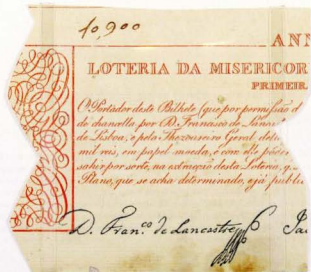 10,900
ANN
LOTERIA DA MISERICOR
PRIMEIR
O Portador deste Bilhete (que por permissão d
de chancella por D. Francisco de
de Lisboa, e pelo Thezoureiro Geral
mil reis, em papel moeda, e com elle poder
sahir por sorte, na extracção desta Loteria, q
Plano, que se acha determinado, e já publi
D. Fran.co de Lancastre